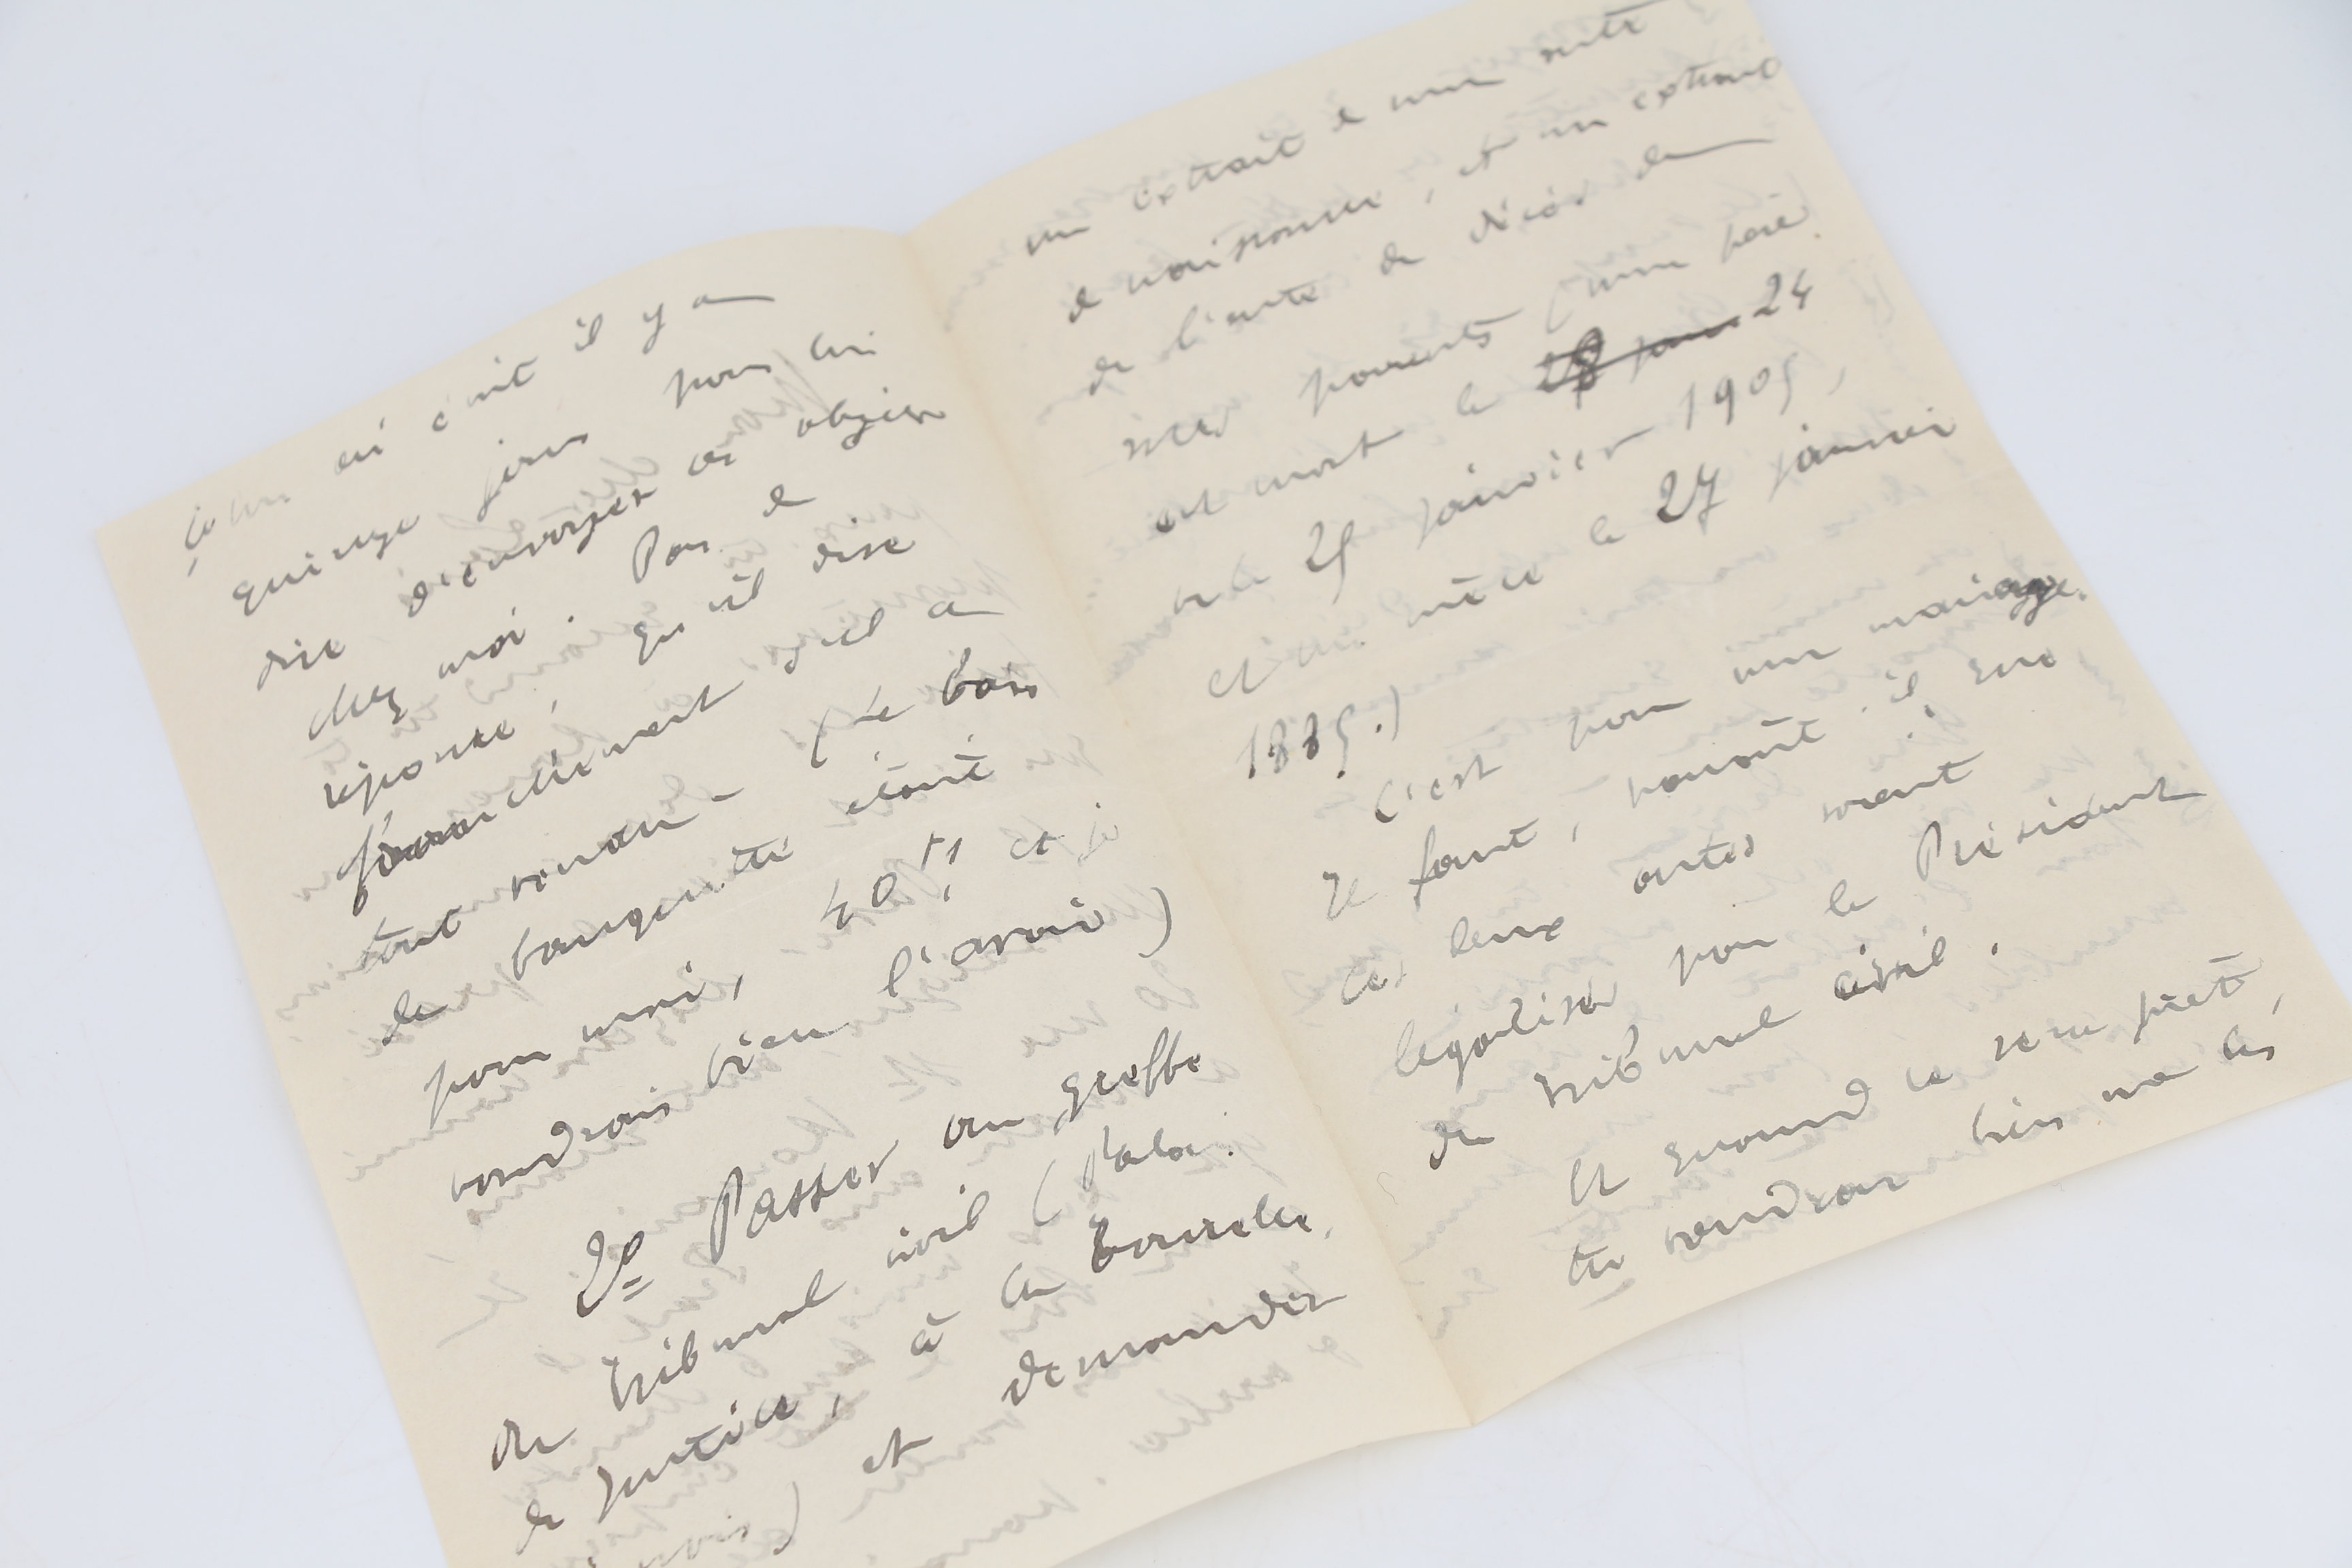 ai écrit il y a
quinze jours pour lui
dire d'envoyer ces objets
chez moi. Pas de
réponse, qu'il dise
franchement s'il a
tout vendu (Le bois
de banquette était
pour moi, 40 f! et je
voudrais bien l'avoir)
2º Passer au greffe
du Tribunal civil (Palais
de Justice, à la
et demander
un extrait de mon acte
de naissance, et un extrait
de l'acte de décès de
mes parents (mon père
est mort le 28 janv 24
ou le 25 janvier 1905,
et ma mère le 27 janvier
1885.)
C'est pour mon mariage.
Il faut, paraît-il, que
ces deux actes soient
légalisés par le Président
du Tribunal civil.
Et quand ce sera prêt,
tu voudras bien me les